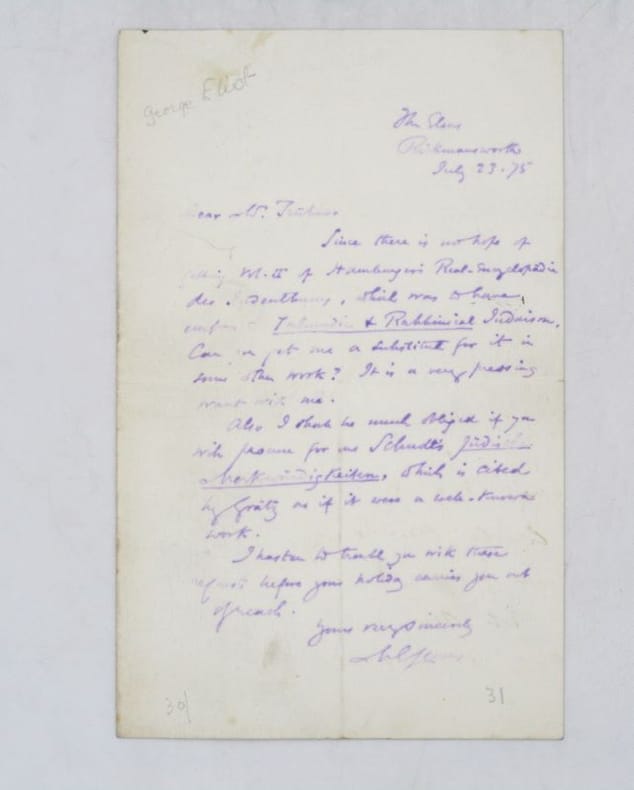 George Eliot
The Elms
Rickmansworth
July 23. 75
Dear Mr. Trübner
Since there is no hope of
getting Vol. II of Hamburger's Real-Encyclopädie
des Judenthums, which was to have
Talmudic & Rabbinical Judaism,
Can you get me a substitute for it in
some other work? It is a very pressing
want with me.
Also I shall be much obliged if you
will procure for me Schudt's Jüdische
Merkwürdigkeiten, which is cited
by Grätz as if it were a well-known
work.
I hasten to trouble you with these
requests before your holiday carries you out
of reach.
Yours very sincerely
M E Lewes
30/
31